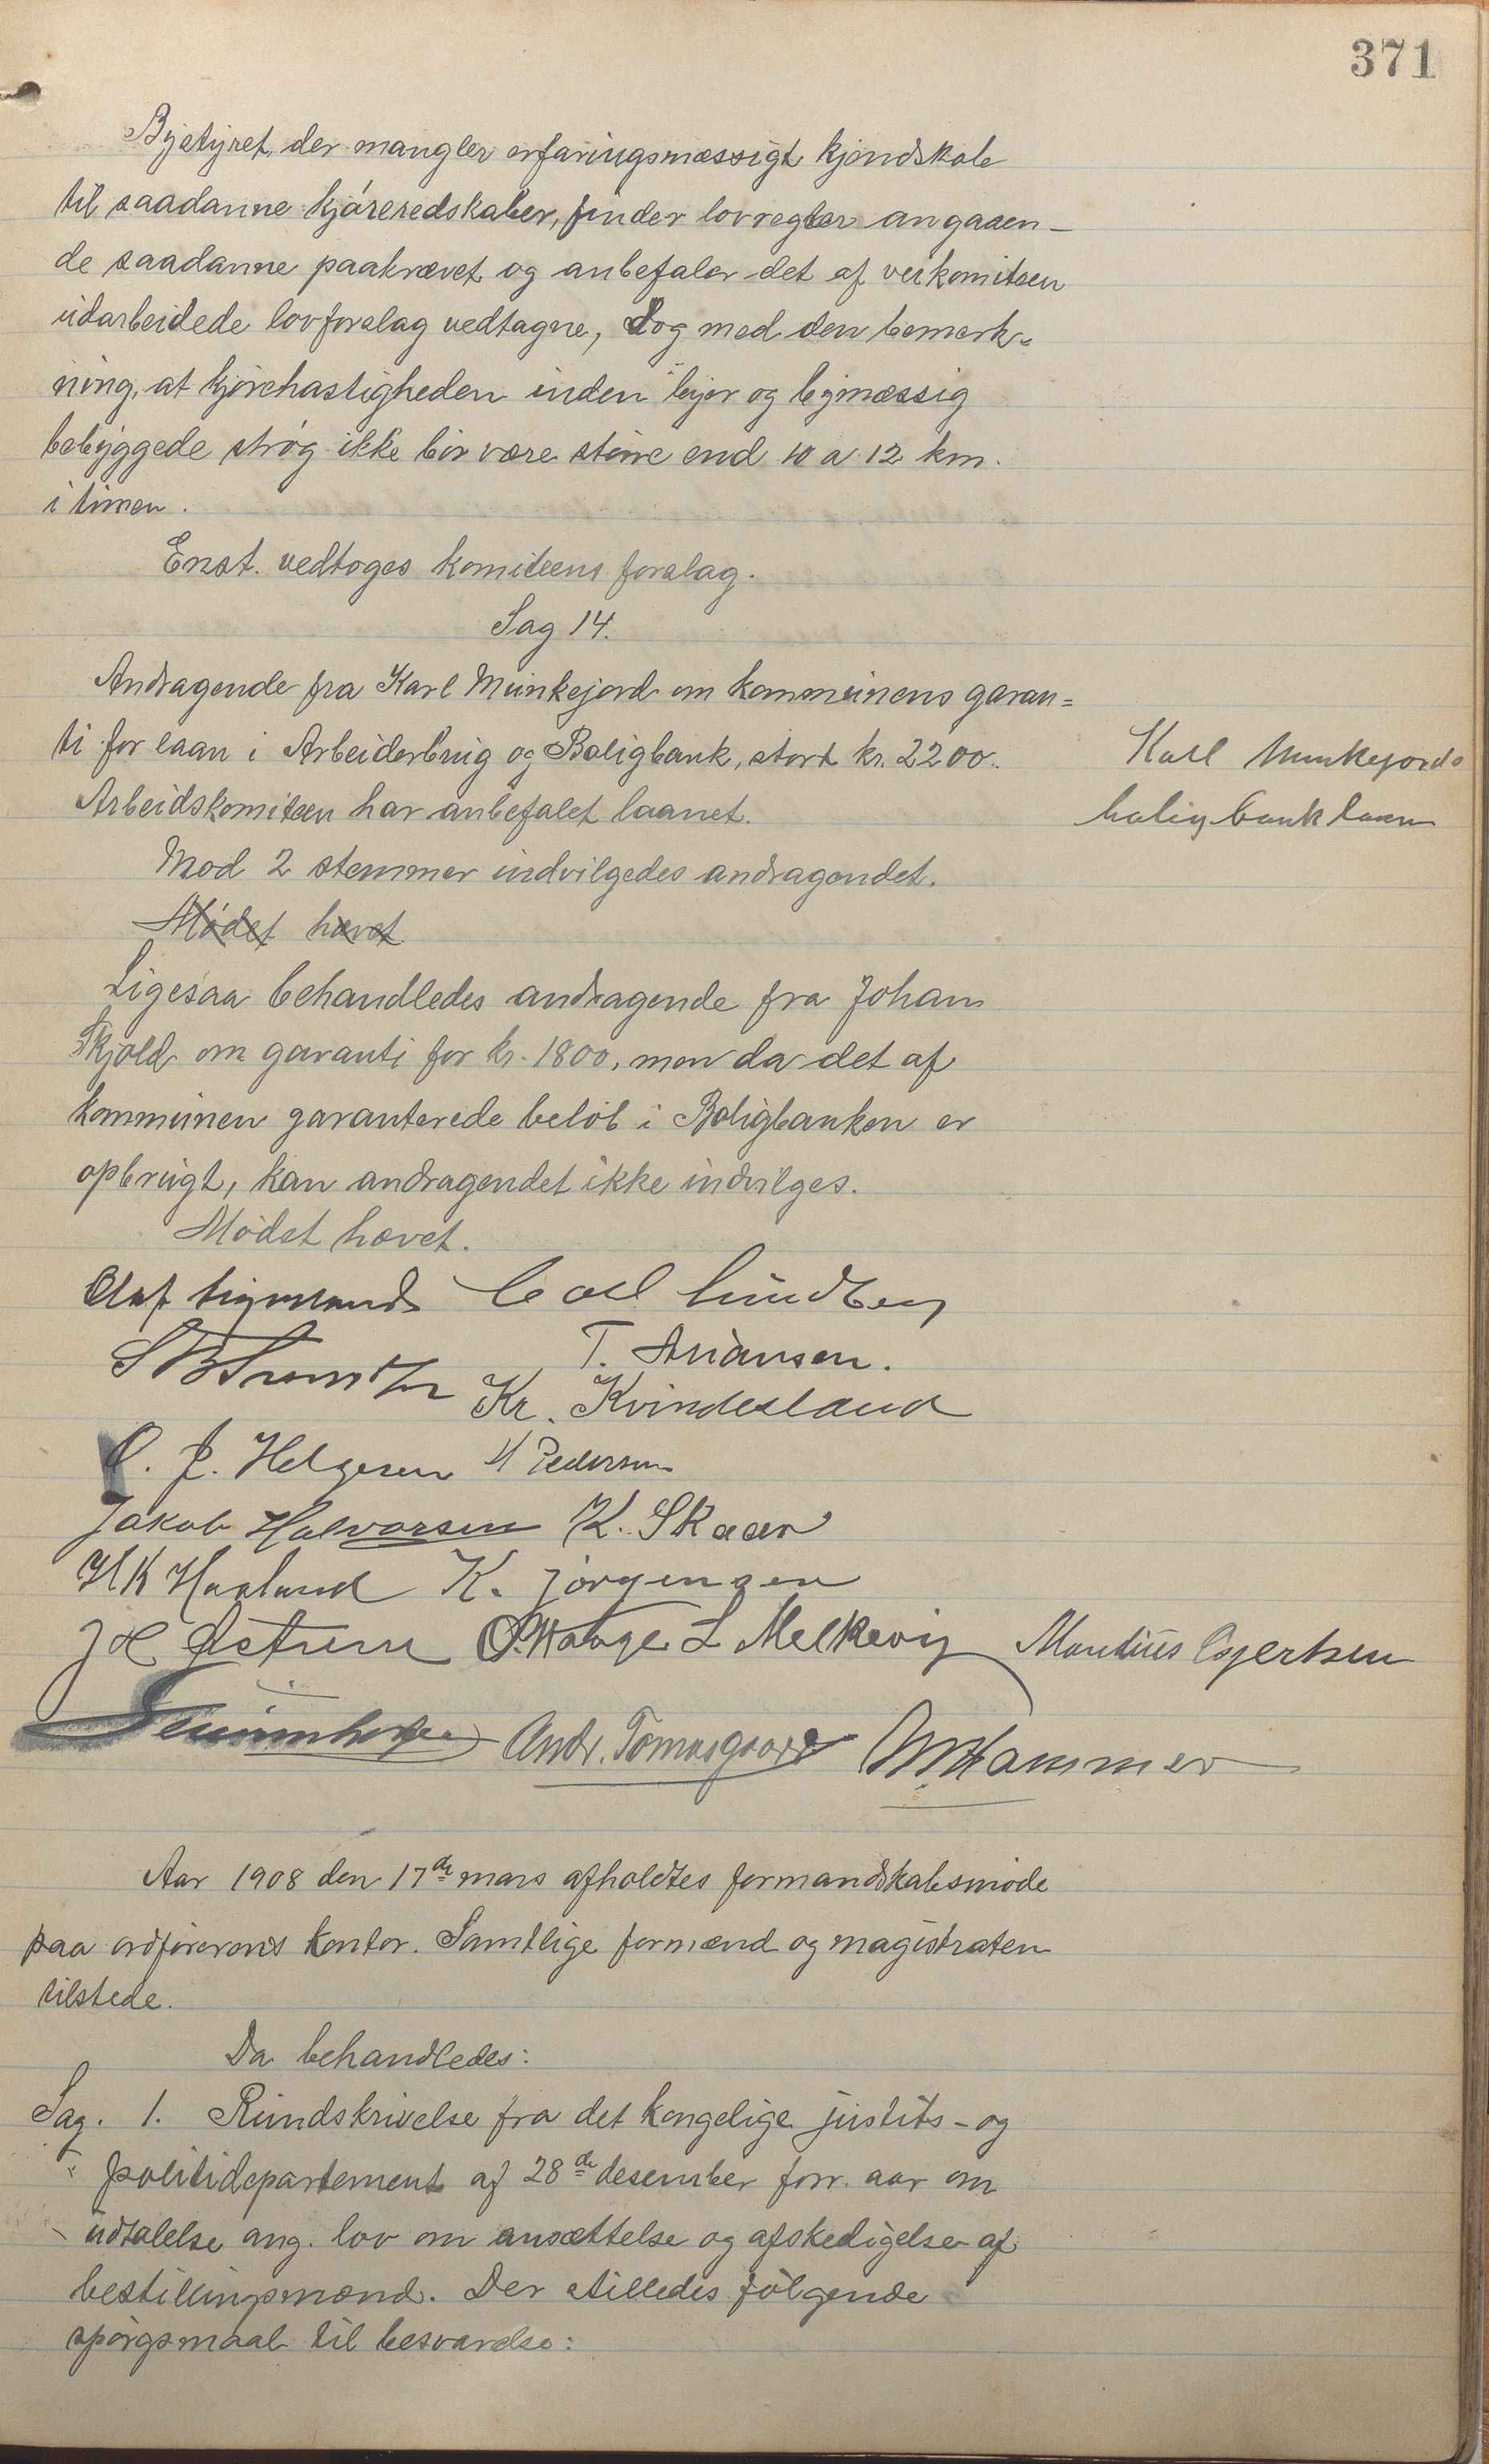 371
Bystyret, der mangler erfaringsmæssigt kjendskab
til saadanne kjøreredskaber, finder lovregler angaaen-
de saadanne paakrævet og anbefaler det af veikomiteen
udarbeidede lovforslag vedtagne, dog med den bemerk-
ning, at kjørehastigheden inden byer og bymæssig
bebyggede strøg ikke bør være større end 10 a 12 km.
i timen.
Enst. vedtoges komiteens forslag.
Sag 14.
Andragende fra Karl Munkejord om kommunens garan=
ti for laan i Arbeiderbrug og Boligbank, stort kr. 2200.
Karl Munkejords
Arbeidskomiteen har anbefalet laanet.
boligbanklaan
Mod 2 stemmer indvilgedes andragendet.
Mødet hævet
Ligesaa behandledes andragende fra Johan
Skjold om garanti for kr. 1800, men da det af
kommunen garanterede beløb i Boligbanken er
opbrugt, kan andragendet ikke indvilges.
Mødet hævet.
Olaf Carl Lundberg
T.
Kr. Kvindesland
O. J. Helgesen H Pedersen
Jakob Halvorsen K. Skaar
H K Haaland K. Jørgensen
O. Hauge L Melkevig Mantius Egertsen
Andr. Tomasgaard Hammer
Aar 1908 den 17de mars afholdtes formandskabsmøde
paa ordførerens kontor. Samtlige formænd og magistraten
tilstede.
Da behandledes:
Sag. 1. Rundskrivelse fra det kongelige justits- og
politidepartement af 28de desember forr. aar om
udtalelse ang. lov om ansættelse og afskedigelse af
bestillingsmænd. Der stilledes følgende
spørgsmaal til besvarelse: